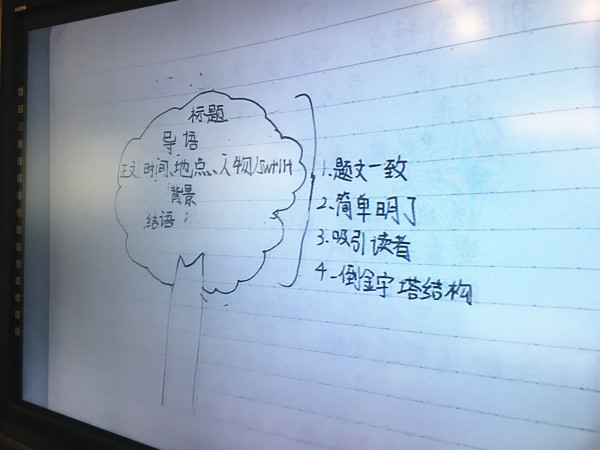 标题
导语
正文 时间、地点、人物/5W+1H
背景
结语
1. 题文一致
2. 简单明了
3. 吸引读者
4. 倒金字塔结构